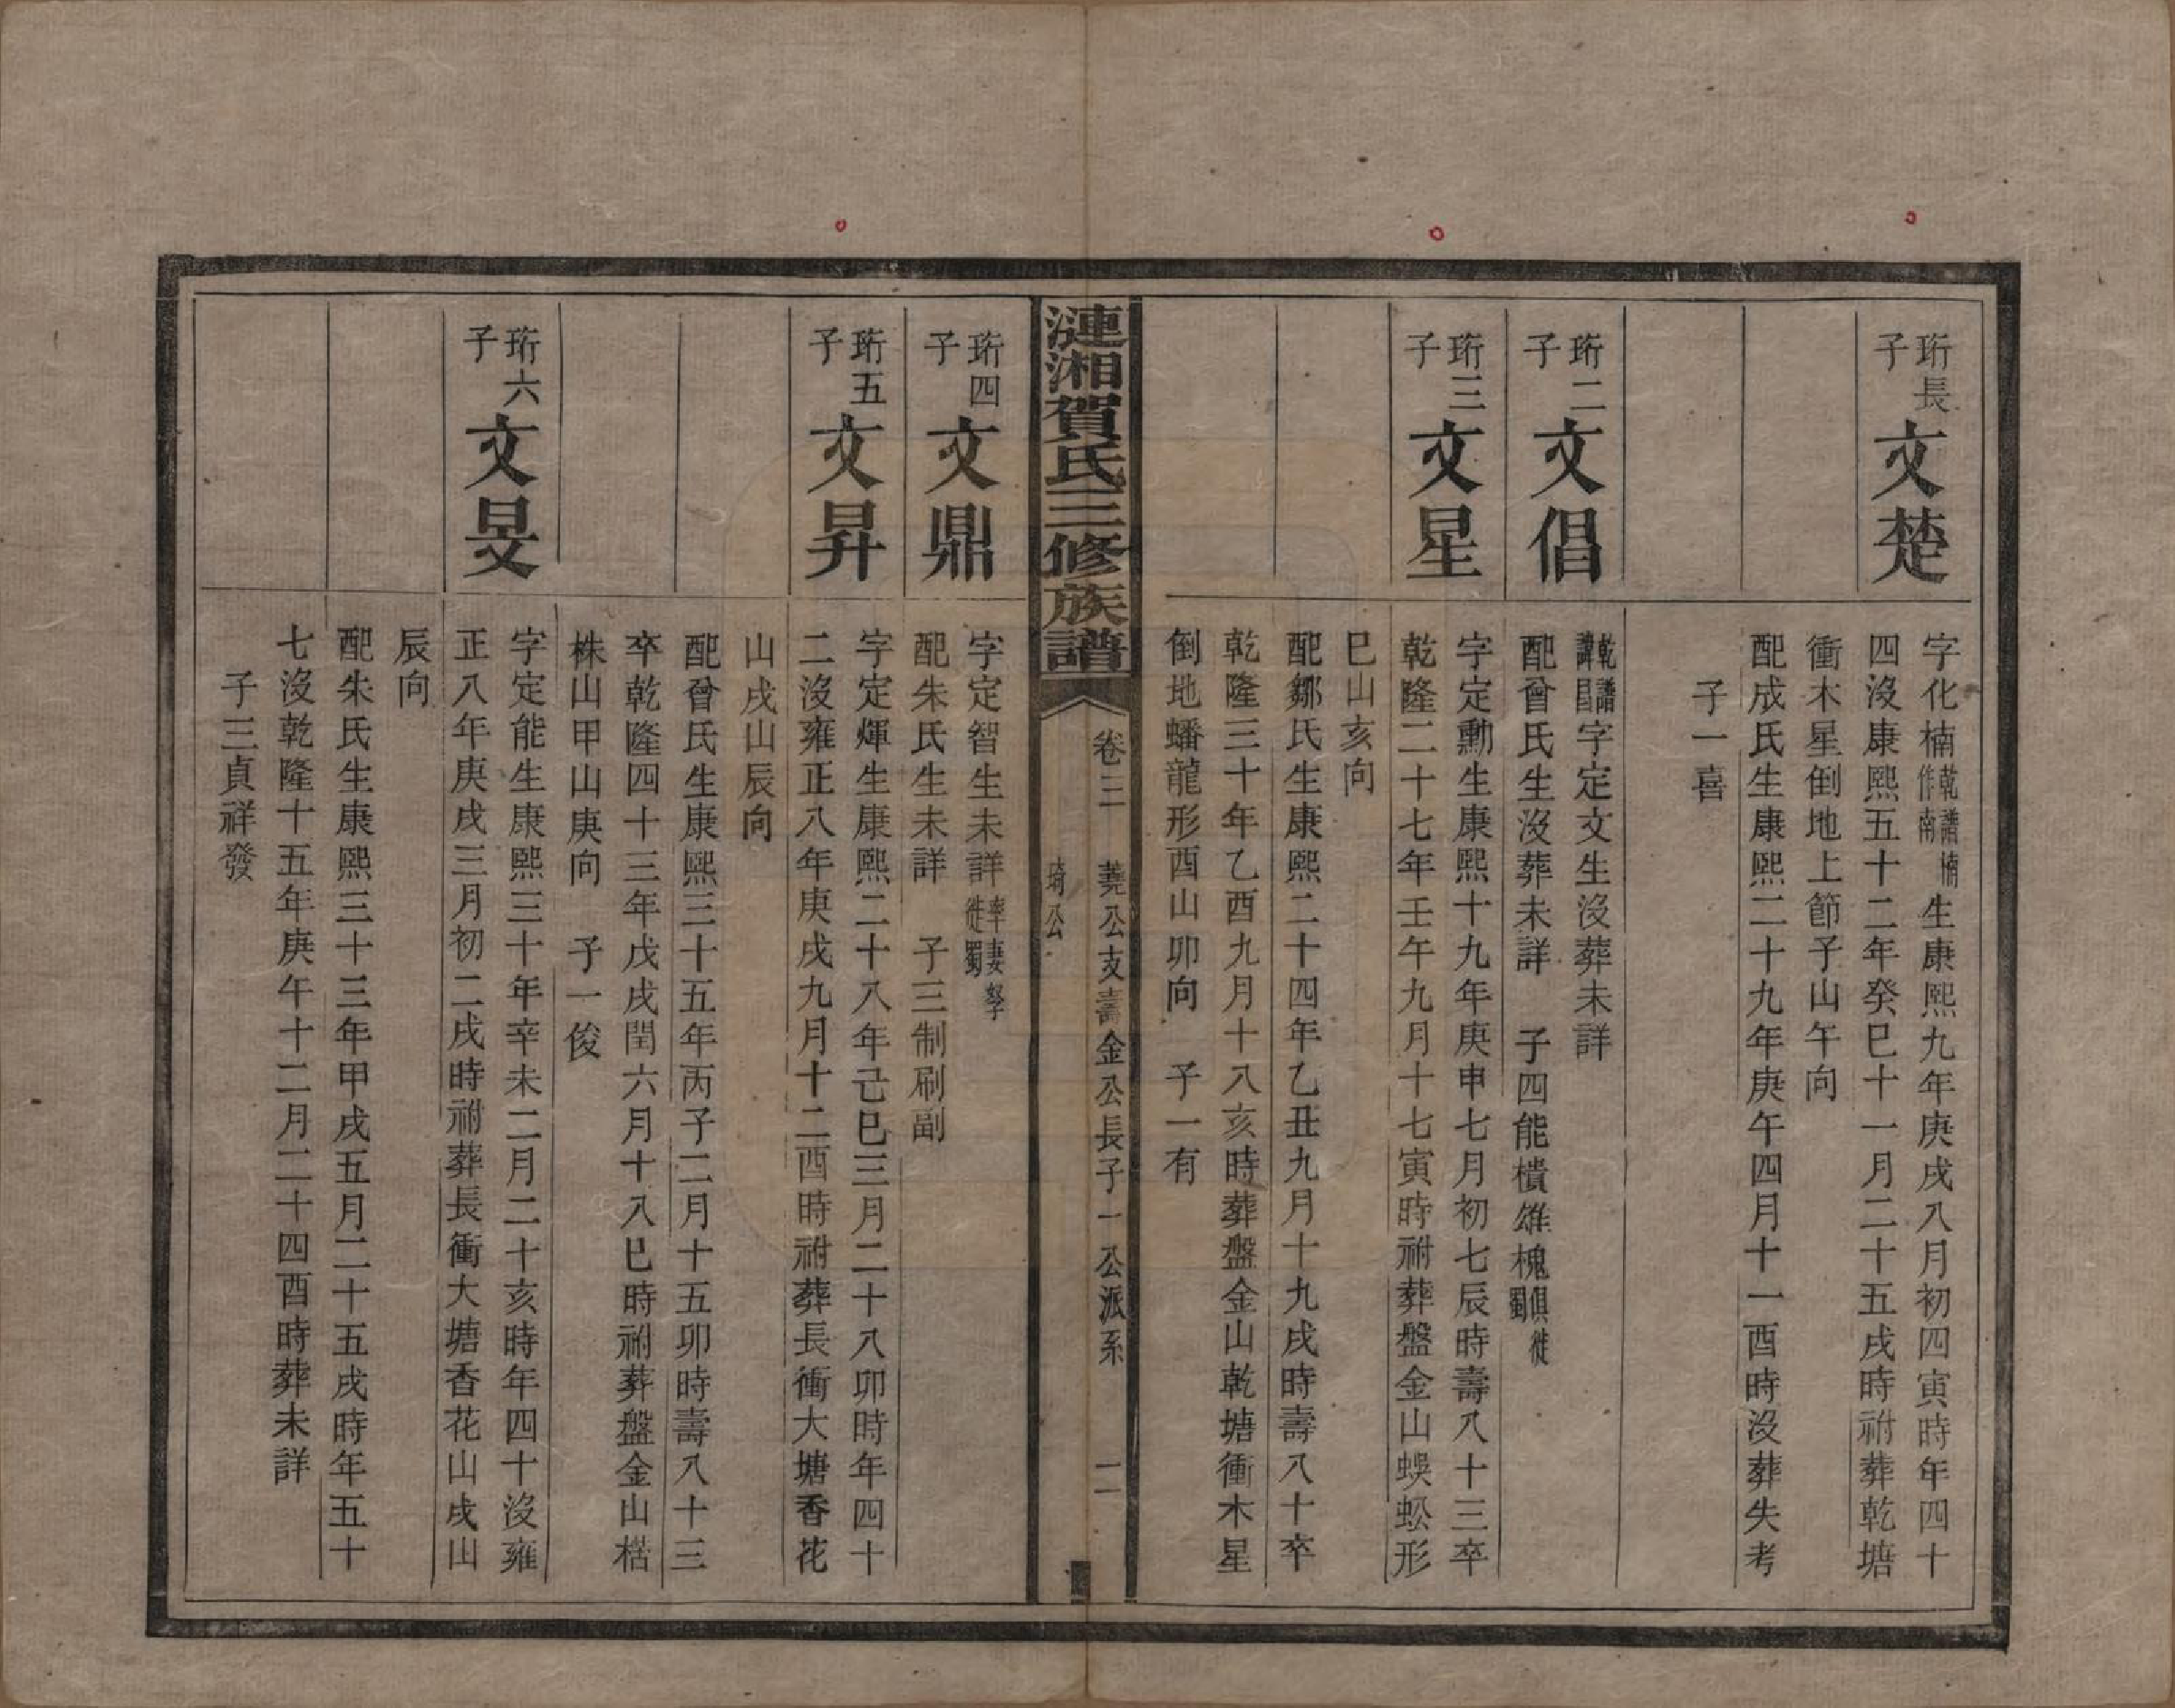 珩長子
文楚
字化楠乾譜楠作南生康熙九年庚戌八月初四寅時年四十
四沒康熙五十二年癸巳十一月二十五戌時祔葬乾塘
衝木星倒地上節子山午向
配成氏生康熙二十九年庚午四月十一酉時沒葬失考
子一喜
珩二子
文倡
乾譜諱昌字定文生沒葬未詳
配曾氏生沒葬未詳　子四能樻雄槐俱徙蜀
珩三子
文星
字定勳生康熙十九年庚申七月初七辰時壽八十三卒
乾隆二十七年壬午九月十七寅時祔葬盤金山蜈蚣形
巳山亥向
配鄒氏生康熙二十四年乙丑九月十九戌時壽八十卒
乾隆三十年乙酉九月十八亥時葬盤金山乾塘衝木星
倒地蟠龍形酉山卯向　子一有
漣湘賀氏三修族譜
卷三　蕘公支壽金公長子一公派系　二
琦公
珩四子
文鼎
字定智生未詳率妻孥徙蜀
配朱氏生未詳　子三制刷副
珩五子
文昇
字定煇生康熙二十八年己巳三月二十八卯時年四十
二沒雍正八年庚戌九月十二酉時祔葬長衝大塘香花
山戌山辰向
配曾氏生康熙三十五年丙子二月十五卯時壽八十三
卒乾隆四十三年戊戌閏六月十八巳時祔葬盤金山楛
株山甲山庚向　子一俊
珩六子
文旻
字定能生康熙三十年辛未二月二十亥時年四十沒雍
正八年庚戌三月初二戌時祔葬長衝大塘香花山戌山
辰向
配朱氏生康熙三十三年甲戌五月二十五戌時年五十
七沒乾隆十五年庚午十二月二十四酉時葬未詳
子三貞祥發